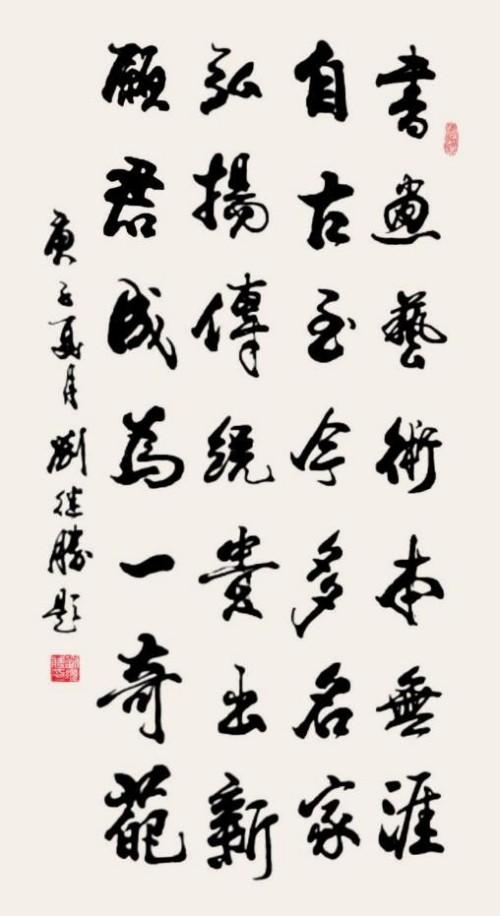 書畫藝術本無涯
自古至今多名家
弘揚傳統貴出新
願君成爲一奇葩
庚子夏月劉德勝題